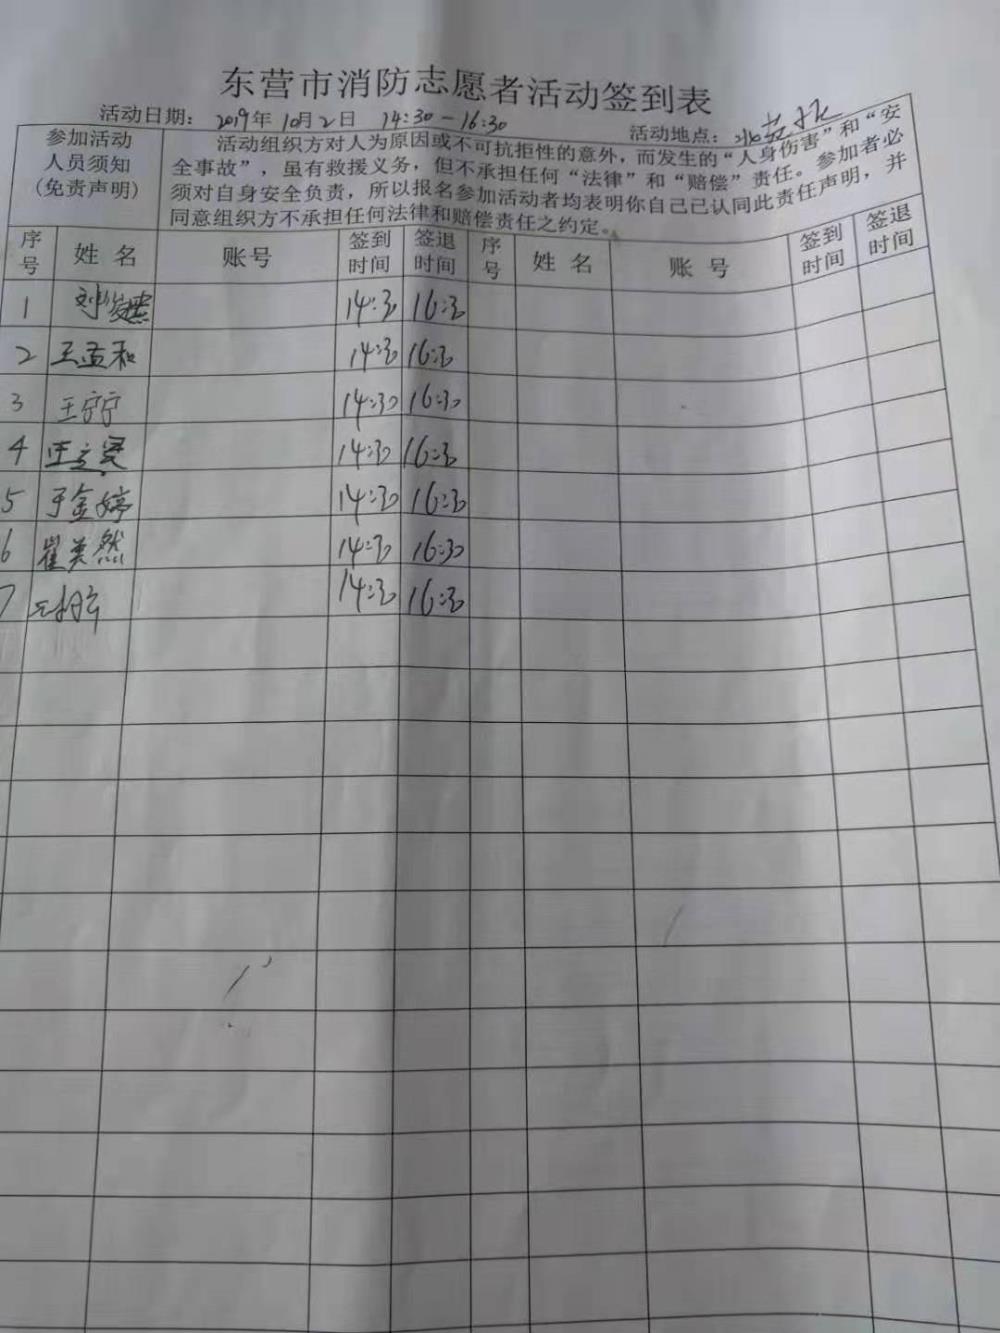 东营市消防志愿者活动签到表
活动日期： 2019年 10月2日 14:30-16:30
活动地点：
参加活动
人员须知
(免责声明)
活动组织方对人为原因或不可抗拒性的意外，而发生的“人身伤害”和“安
全事故”，虽有救援义务，但不承担任何“法律”和“赔偿”责任。参加者必
须对自身安全负责，所以报名参加活动者均表明你自己已认同此责任声明，并
同意组织方不承担任何法律和赔偿责任之约定。
序号 姓名 账号 签到时间 签退时间 序号 姓名 账号 签到时间 签退时间
1 14:30 16:30
2 王孟和 14:30 16:30
3 王宁宁 14:30 16:30
4 14:30 16:30
5 于金婷 14:30 16:30
6 崔美然 14:30 16:30
7 14:30 16:30